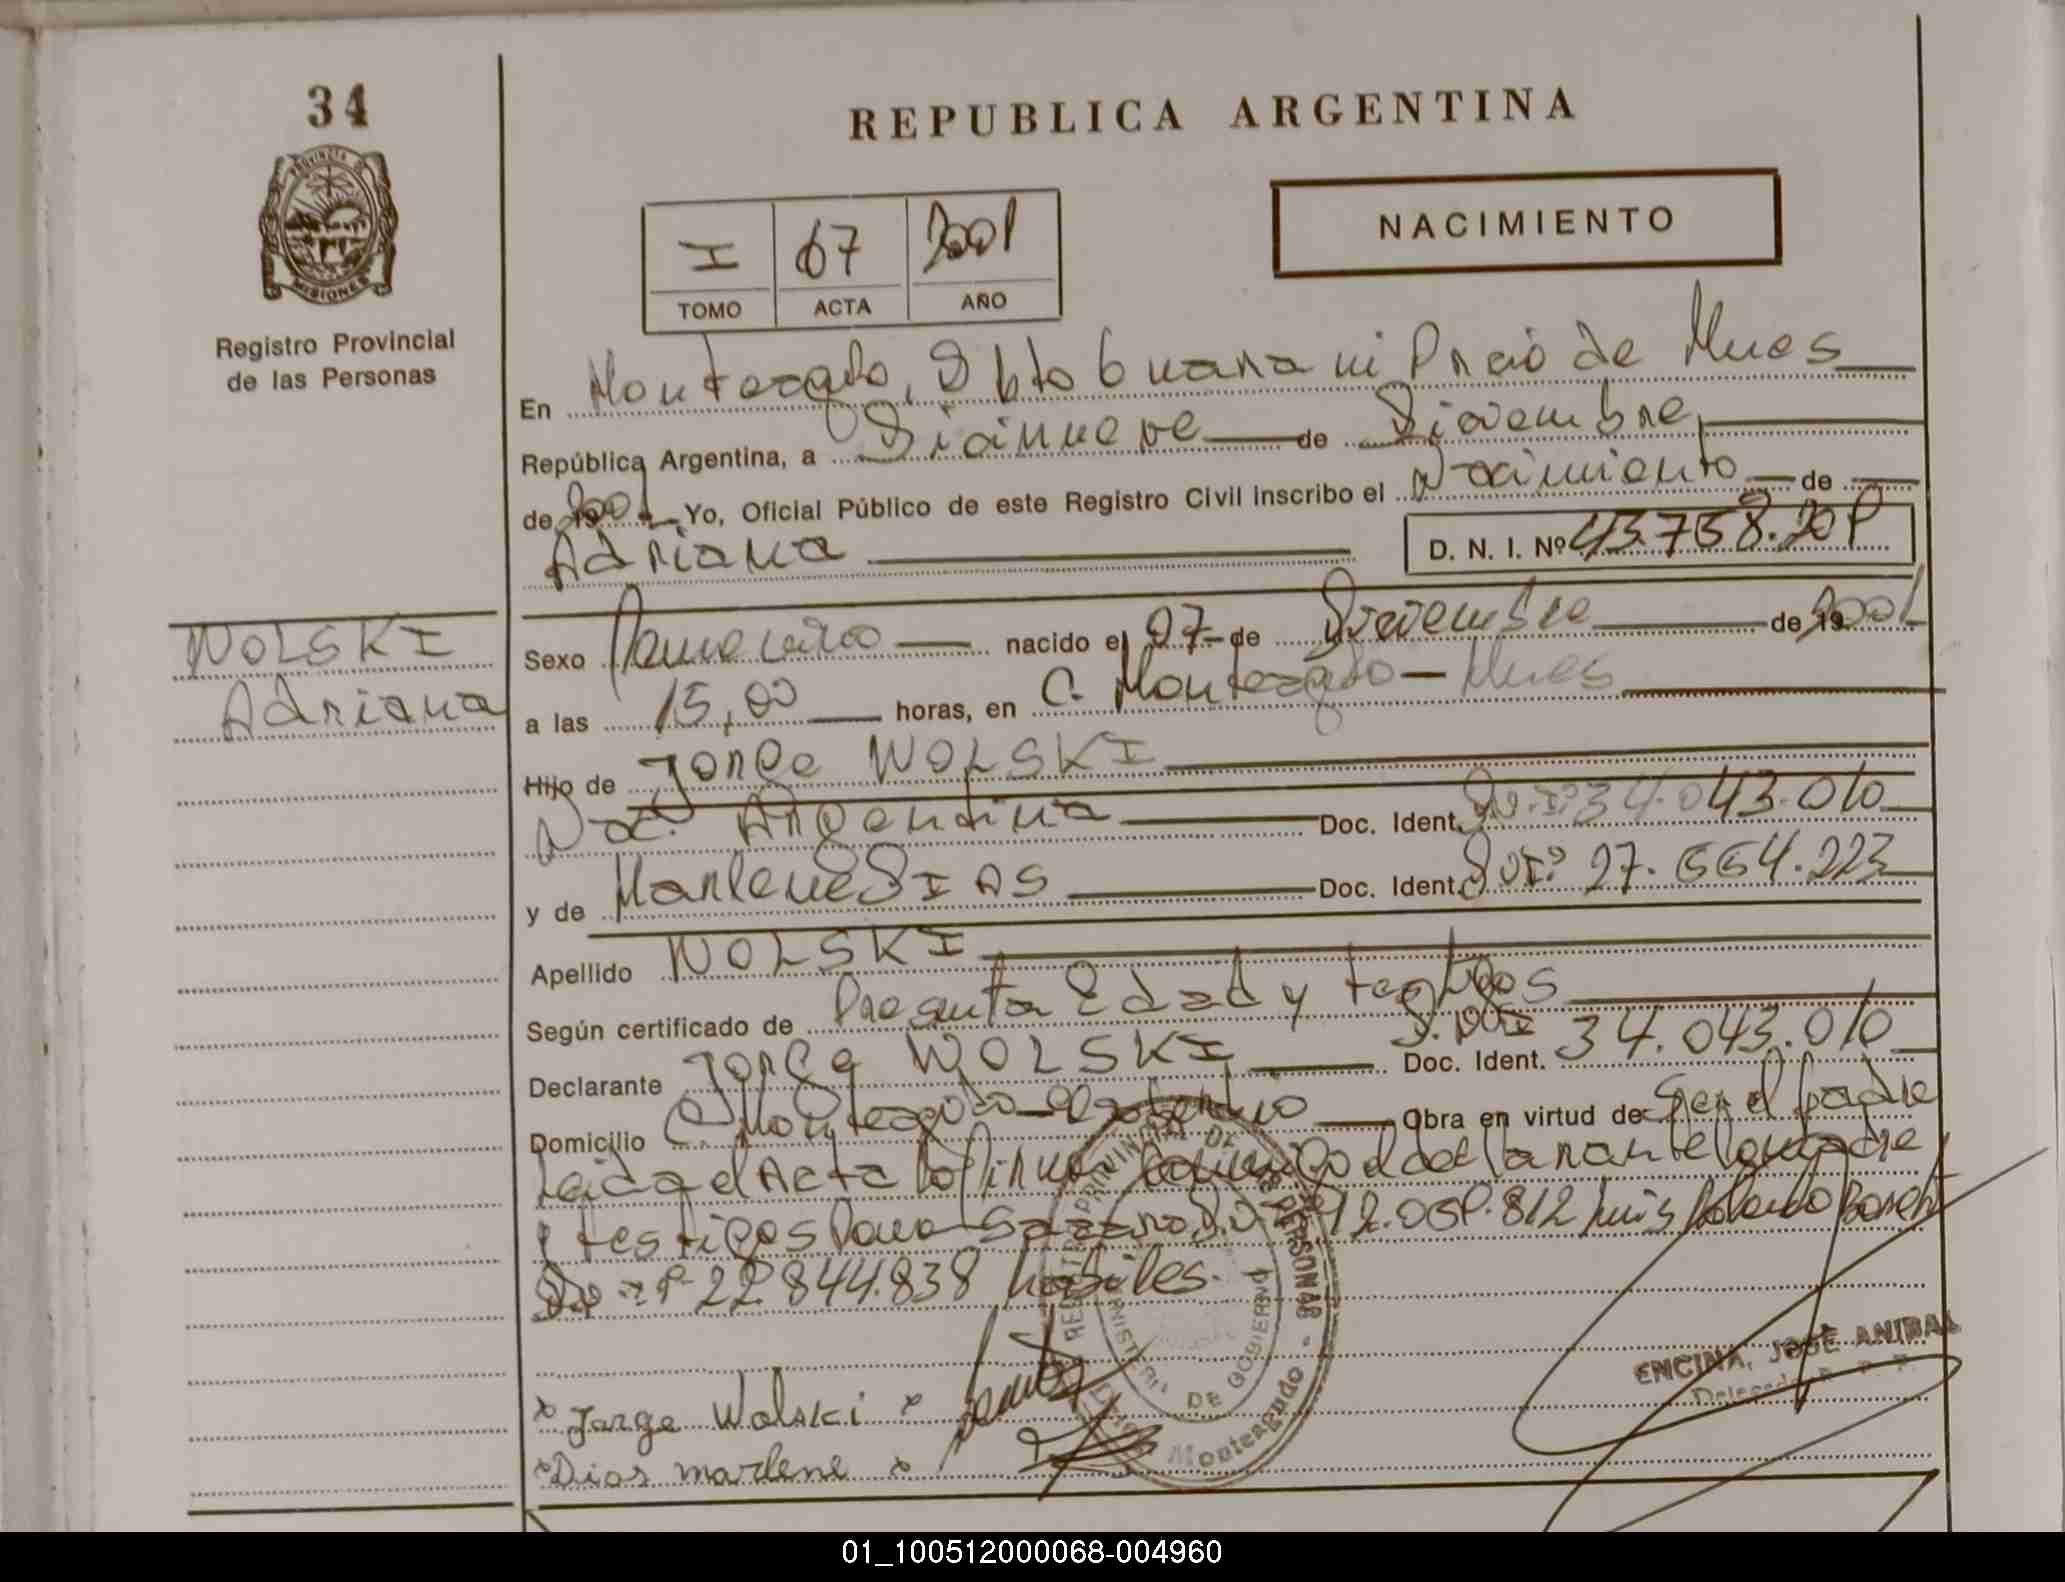 34
REPUBLICA ARGENTINA
PROVINCIA D
MISIONES
Registro Provincial
de las Personas
I 67 2001
TOMO ACTA AÑO
NACIMIENTO
En Monteagudo, Dpto Guarani Pncia de Mnes
República Argentina, a Diecinueve de Diciembre
de 19 2001 Yo, Oficial Público de este Registro Civil inscribo el Nacimiento de
Adriana D. N. I. Nº 43.758.201
WOLSKI
Adriana
Sexo Femenino nacido el 07 de Diciembre de 19 2001
a las 15,00 horas, en C. Monteagudo - Mnes
Hijo de Jorge WOLSKI
Nac. Argentina Doc. Ident. 34.043.010
y de Marlene DIAS Doc. Ident. 27.554.223
Apellido WOLSKI
Según certificado de Presunta Edad y testigos
Declarante Jorge WOLSKI Doc. Ident. 34.043.010
Domicilio C. Monteagudo Obra en virtud de Ser el padre
Leida el Acta la firma conmigo el declarante la madre
y testigos 812 Luis Rolando
22.844.838 habiles.
REGISTRO PROVINCIAL DE LAS PERSONAS - Monteagudo
MINISTERIO DE GOBIERNO
ENCINA, JOSE ANIBAL
x Jorge Wolski x
x Dias marlene x
01_100512000068-004960